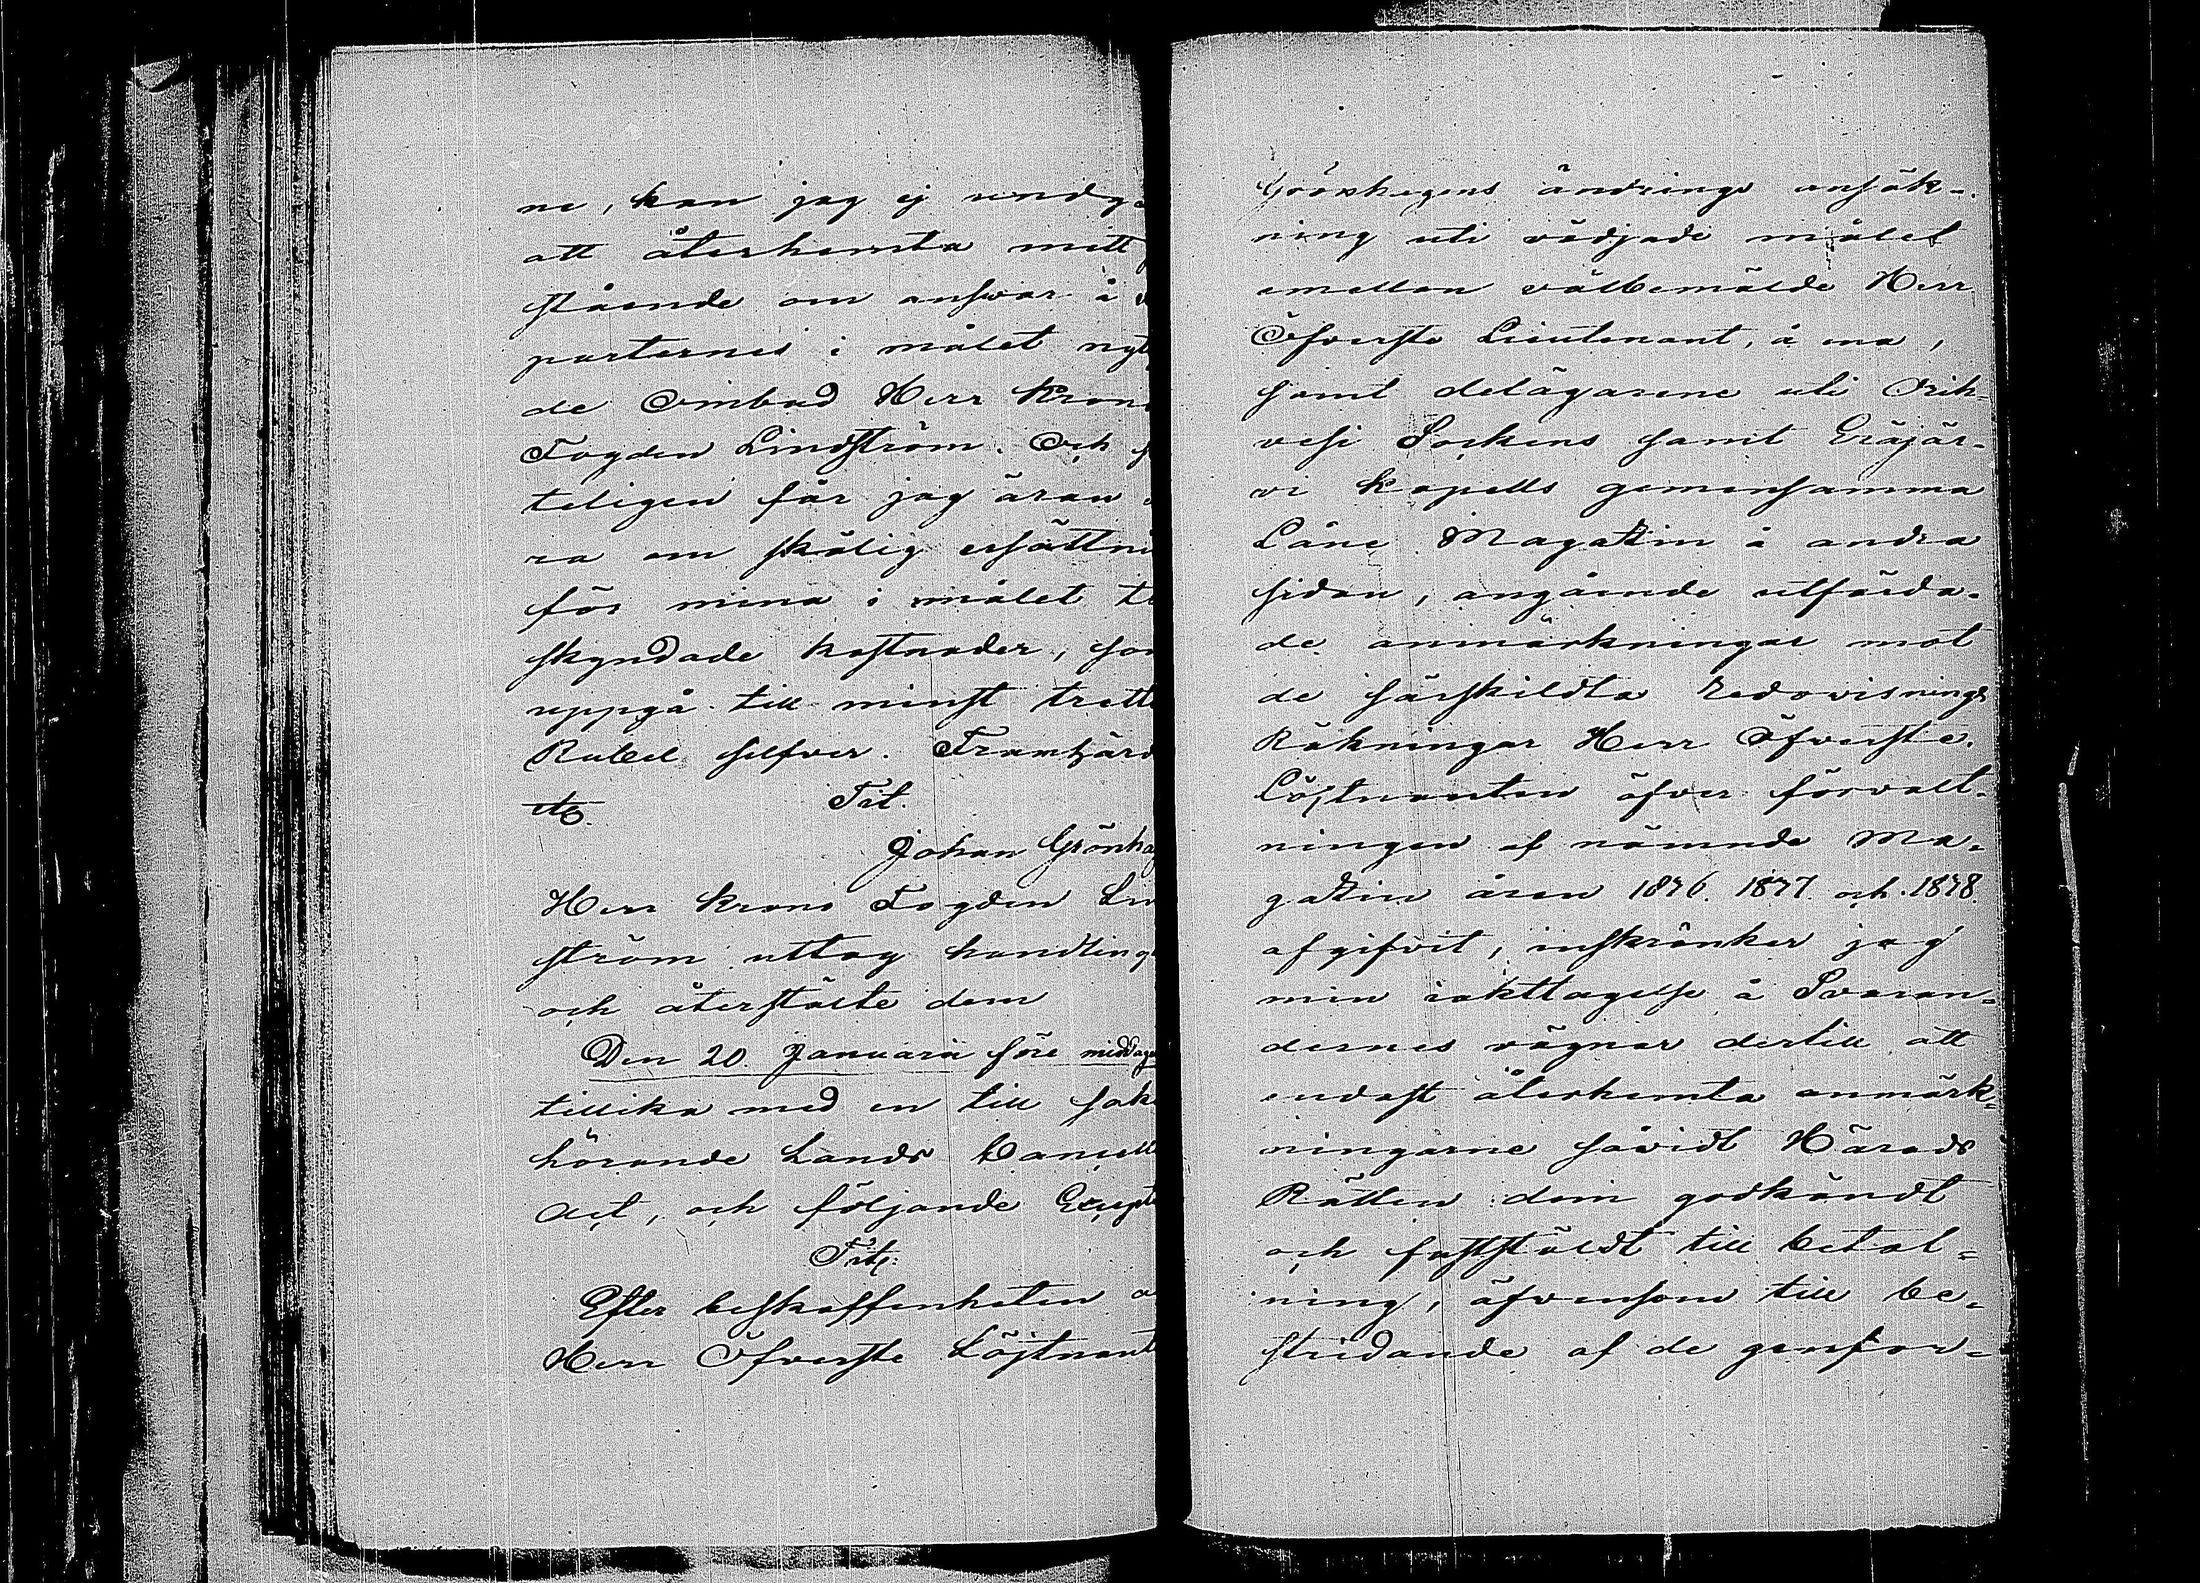 ne, kan jag ej undg-
att återhemta mitt
stående om answar å
parternes i målet nyt
de Ombud Herr Krono
Fogden Lindström. Och s
teligen får jag äran
ra om skälig ersättni
för mina i målet ti
skyndade kostnader, som
uppgå till minst trett
Rubel silfver. Framhärd
etc. Tit.
Johan Grönhag
Herr Krono Fogden Lin
ström uttog handling
och återstälte dem
Den 20. Januarii före middagen
tillika med en till sak
hörande Lands Cancell
Act, och följande Except
Tit.
Efter beskaffenheten a
Herr Öfverste Löjtnant
Grönhagens ändrings ansök-
ning uti vädjade målet
emellan välbemälde Herr
Öfverste Lieutenant, å ena,
samt delägarene uti Orih-
vesi Sockens samt Eräjär-
vi Kapells gemensamma
Låne Magazin å andra
sidan, angående utfärda-
de anmärkningar mot
de särskildta Redovisnings
Räkningar Herr Öfverste
Löjtnanten öfver förvalt-
ningen af nämnde Ma-
gazin åren 1876. 1877. och 1878.
afgifvit, inskränker jag
min iakttagelse å Svaran-
dernes vägnar dertill att
endast återhemta anmärk-
ningarne såvidt Härads
Rätten dem godkändt
och fastställdt till betal-
ning, äfvensom till be-
stridande af de genfor-